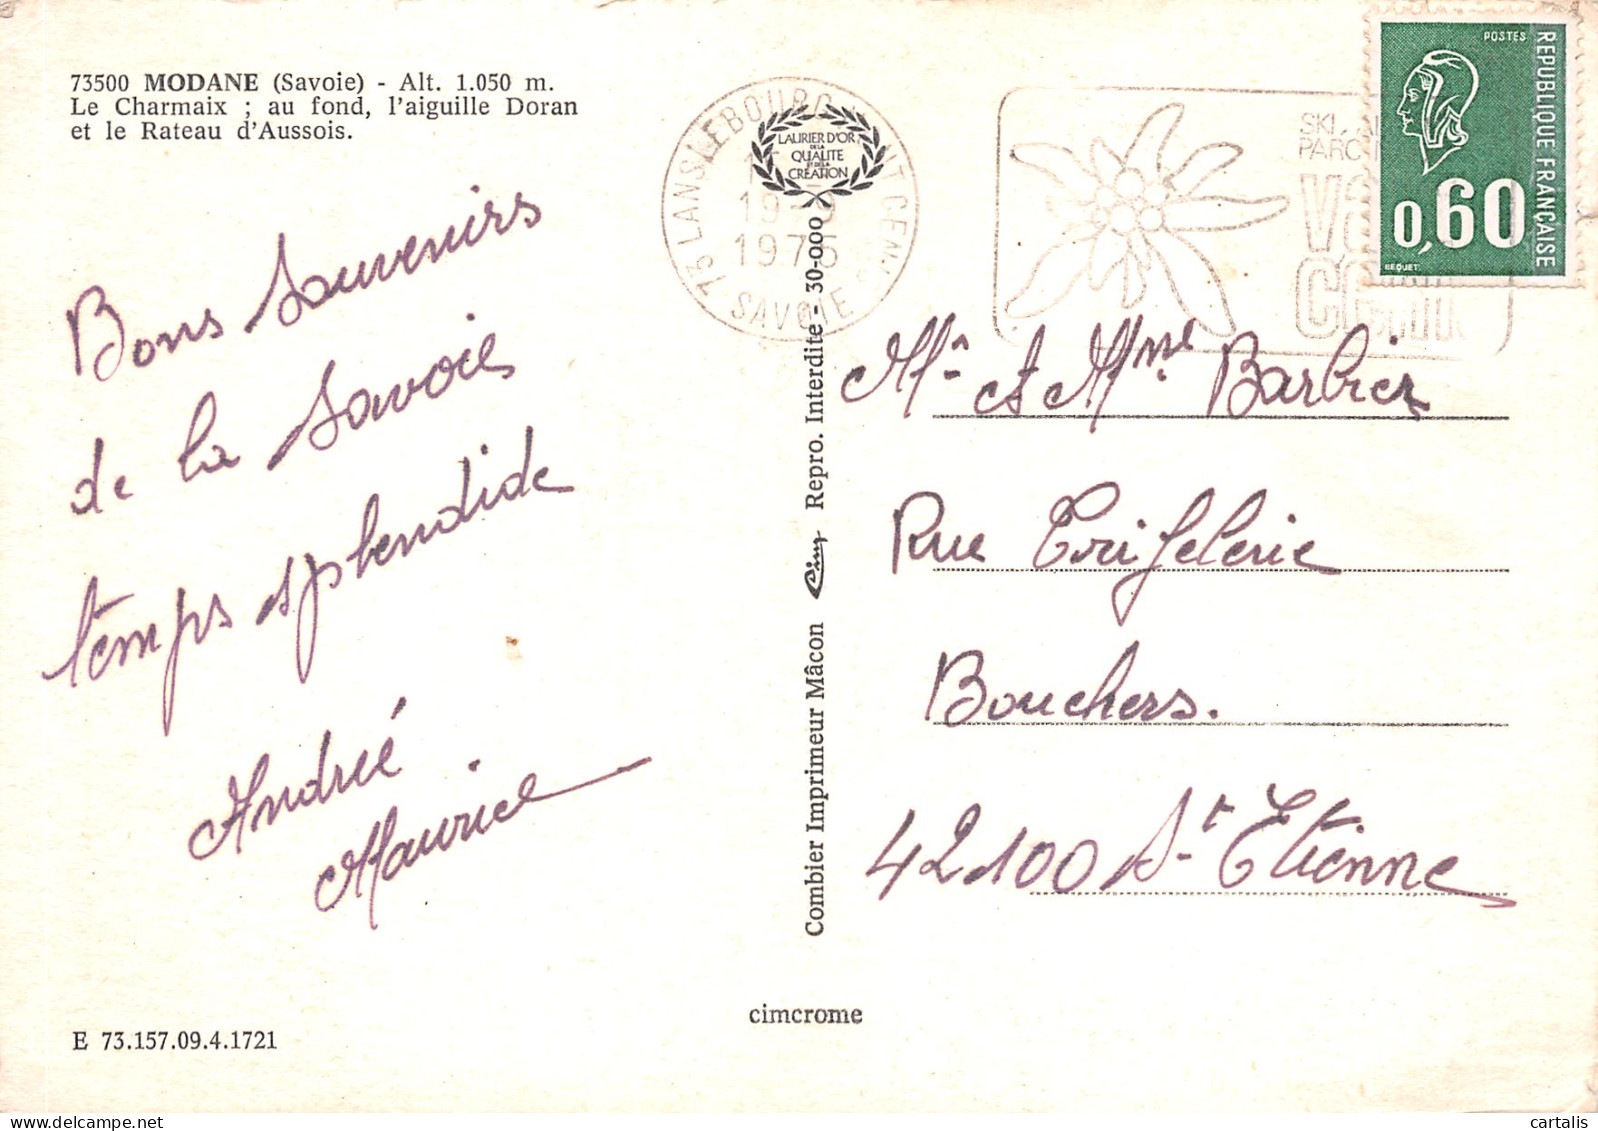 73500 MODANE (Savoie) - Alt. 1.050 m.
Le Charmaix ; au fond, l'aiguille Doran
et le Rateau d'Aussois.
Bons souvenirs
de la Savoie
temps splendide
Andrée
Maurice
E 73.157.09.4.1721
73 LANSLEBOURG
1975
SAVOIE
LAURIER D'OR
DE LA
QUALITE
ET DE LA
CREATION
Combier Imprimeur Mâcon Cim Repro. Interdite - 30-000
cimcrome
SKI
POSTES
REPUBLIQUE FRANÇAISE
0,60
BEQUET
Mr et Mme Barbier
Rue
Bouchers.
42100 St Etienne
cartalis